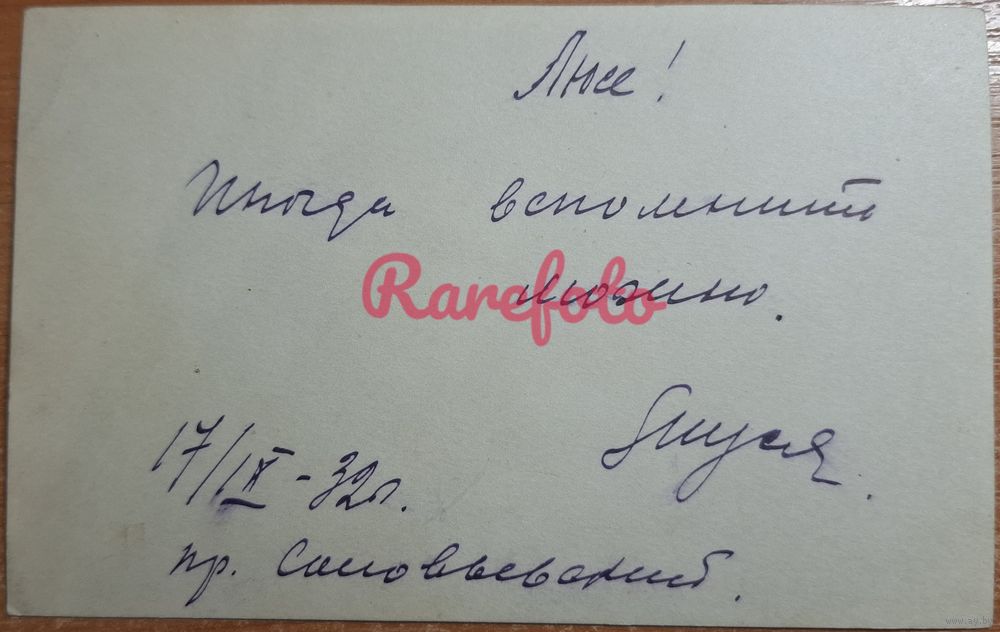 Люсе!
Иногда вспомнить
можно.
Rarefoto
Януся.
17/IX-32г.
пр. Соловьевский.
www.ay.by